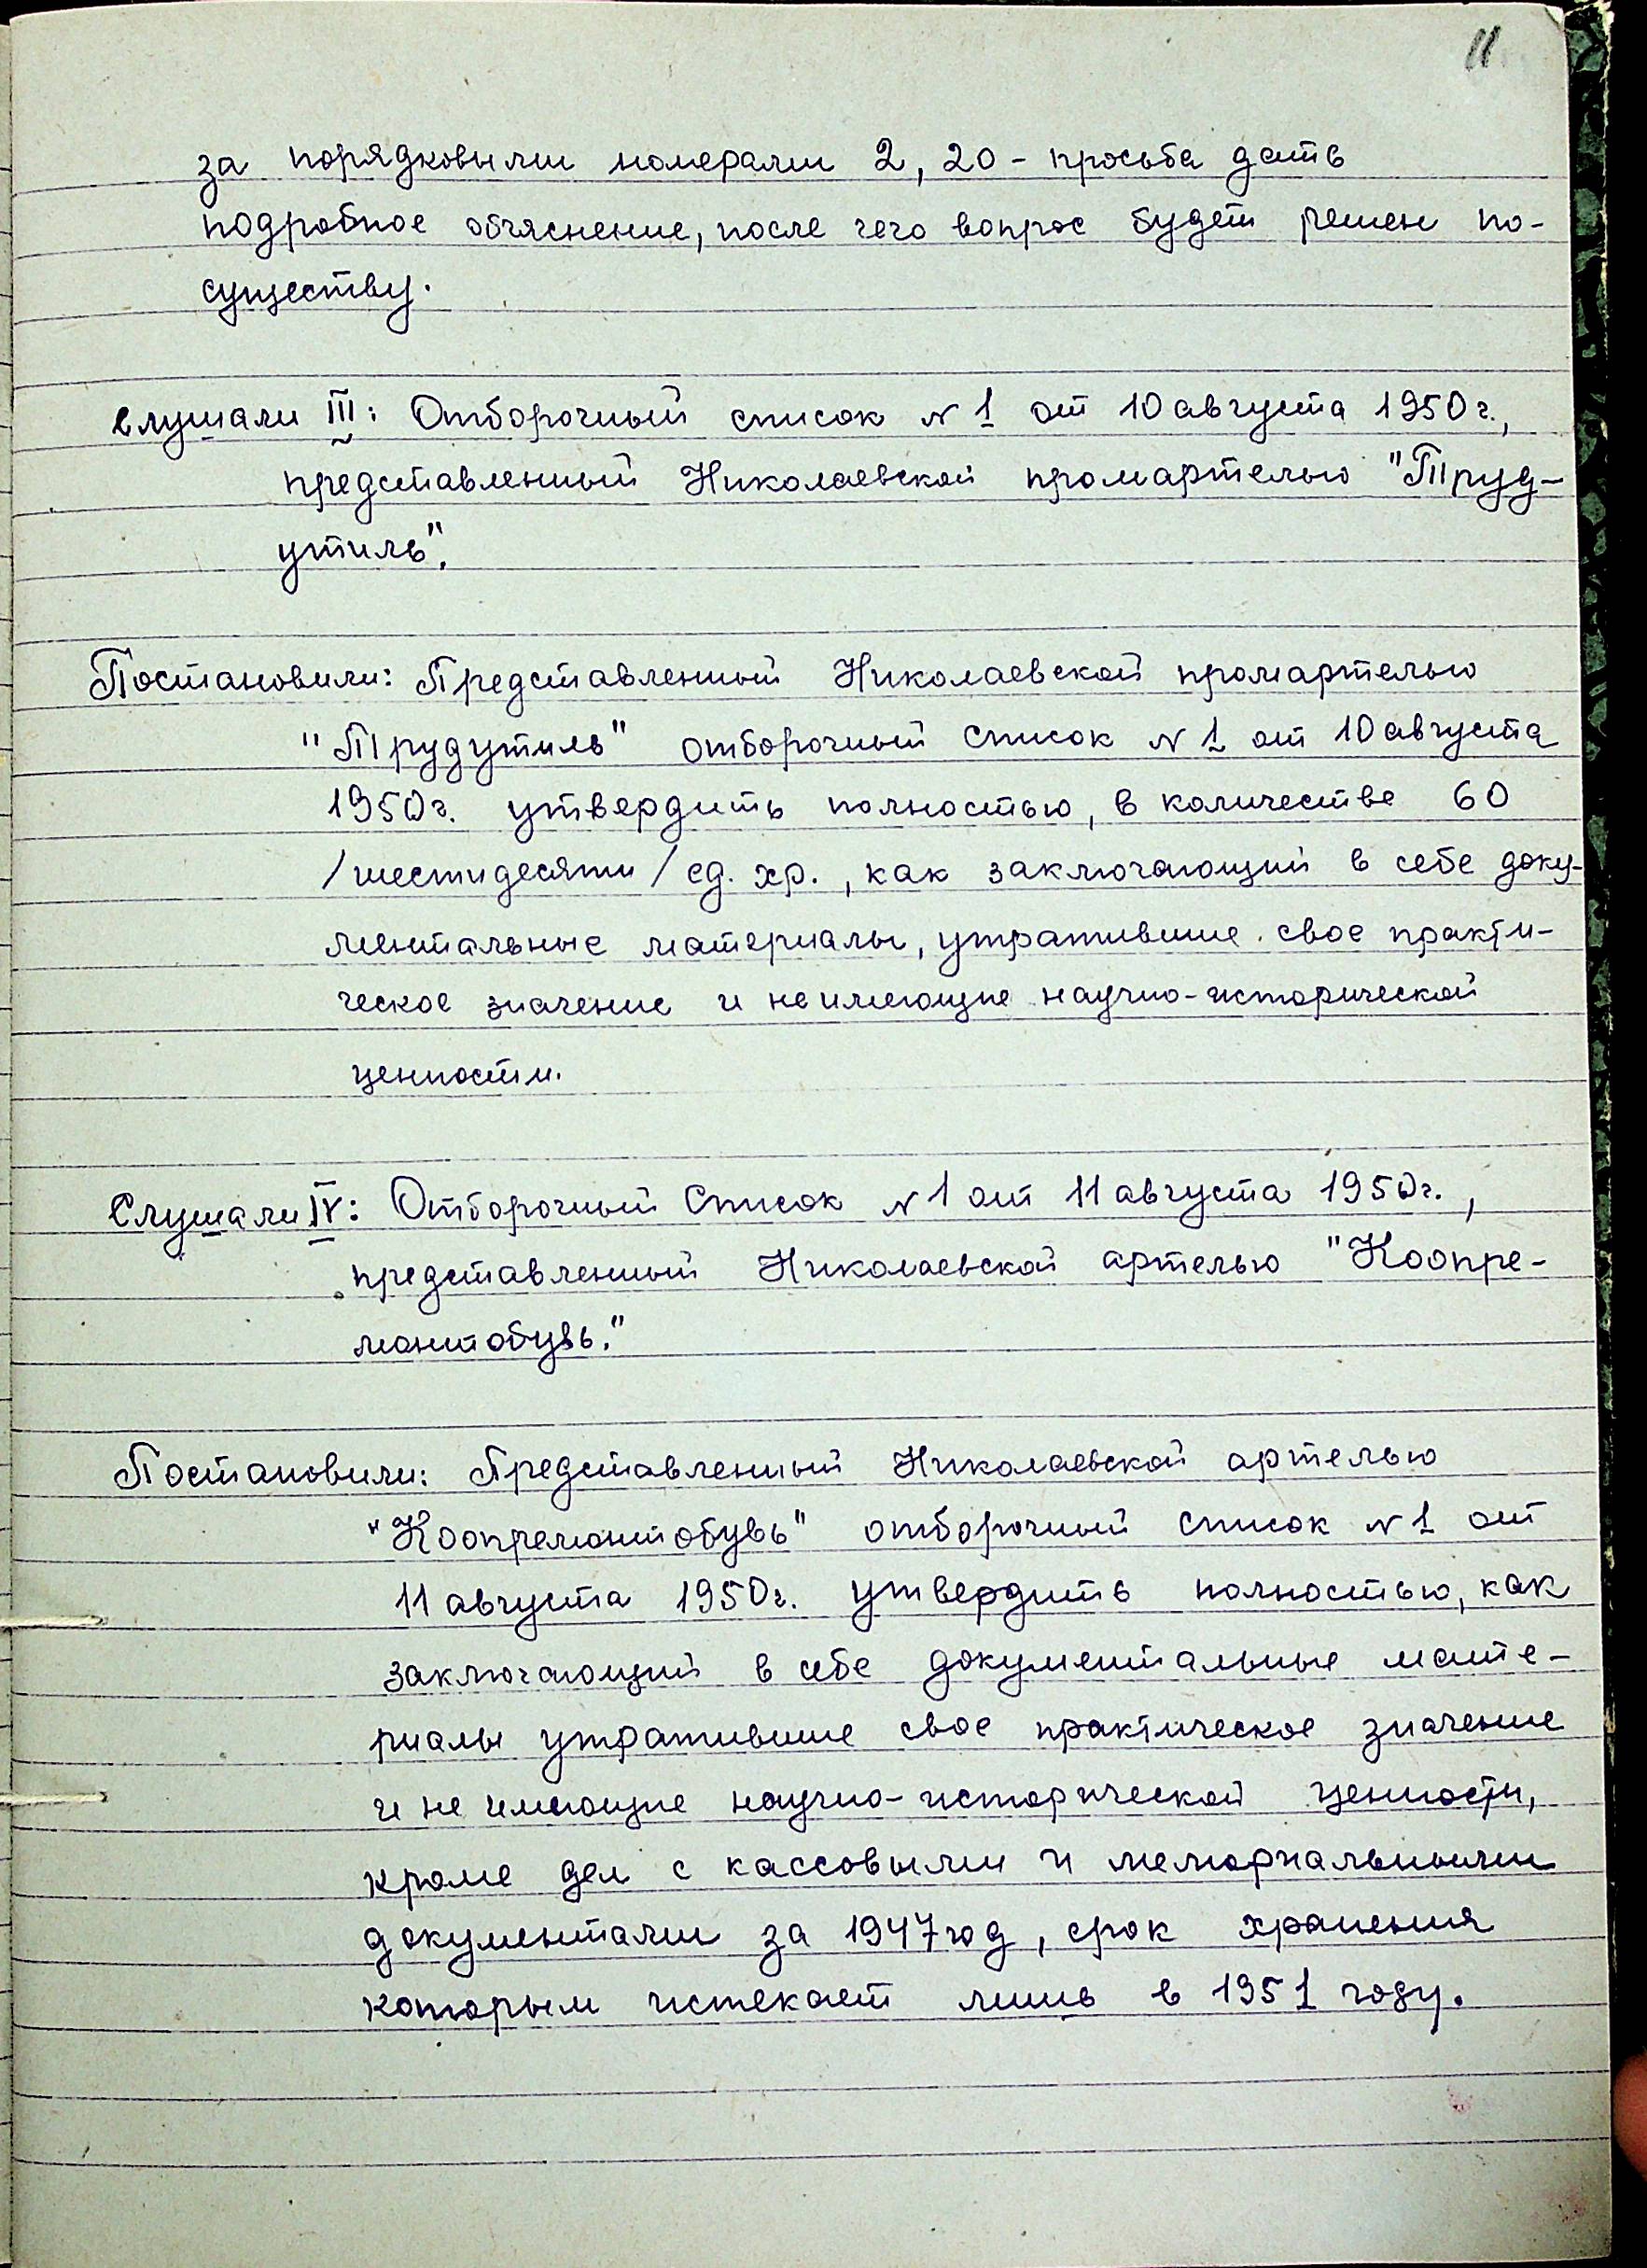 11
за порядковыми номерами 2, 20 - просьба дать
подробное объяснение, после чего вопрос будет решен по-
существу.
Слушали III: Отборочный список N 1 от 10 августа 1950 г.,
представленный Николаевской промартелью "Труд-
утиль".
Постановили: Представленный Николаевской промартелью
"Трудутиль" отборочный список N 1 от 10 августа
1950 г. утвердить полностью, в количестве 60
/шестидесяти/ ед. хр., как заключающий в себе доку-
ментальные материалы, утратившие свое практи-
ческое значение и не имеющие научно-исторической
ценности.
Слушали IV: Отборочный Список N 1 от 11 августа 1950 г.,
представленный Николаевской артелью "Коопре-
монтобувь."
Постановили: Представленный Николаевской артелью
"Коопремонтобувь" отборочный список N 1 от
11 августа 1950 г. утвердить полностью, как
заключающий в себе документальные мате-
риалы утратившие свое практическое значение
и не имеющие научно-исторической ценности,
кроме дел с кассовыми и мемориальными
документами за 1947 год, срок хранения
которым истекает лишь в 1951 году.